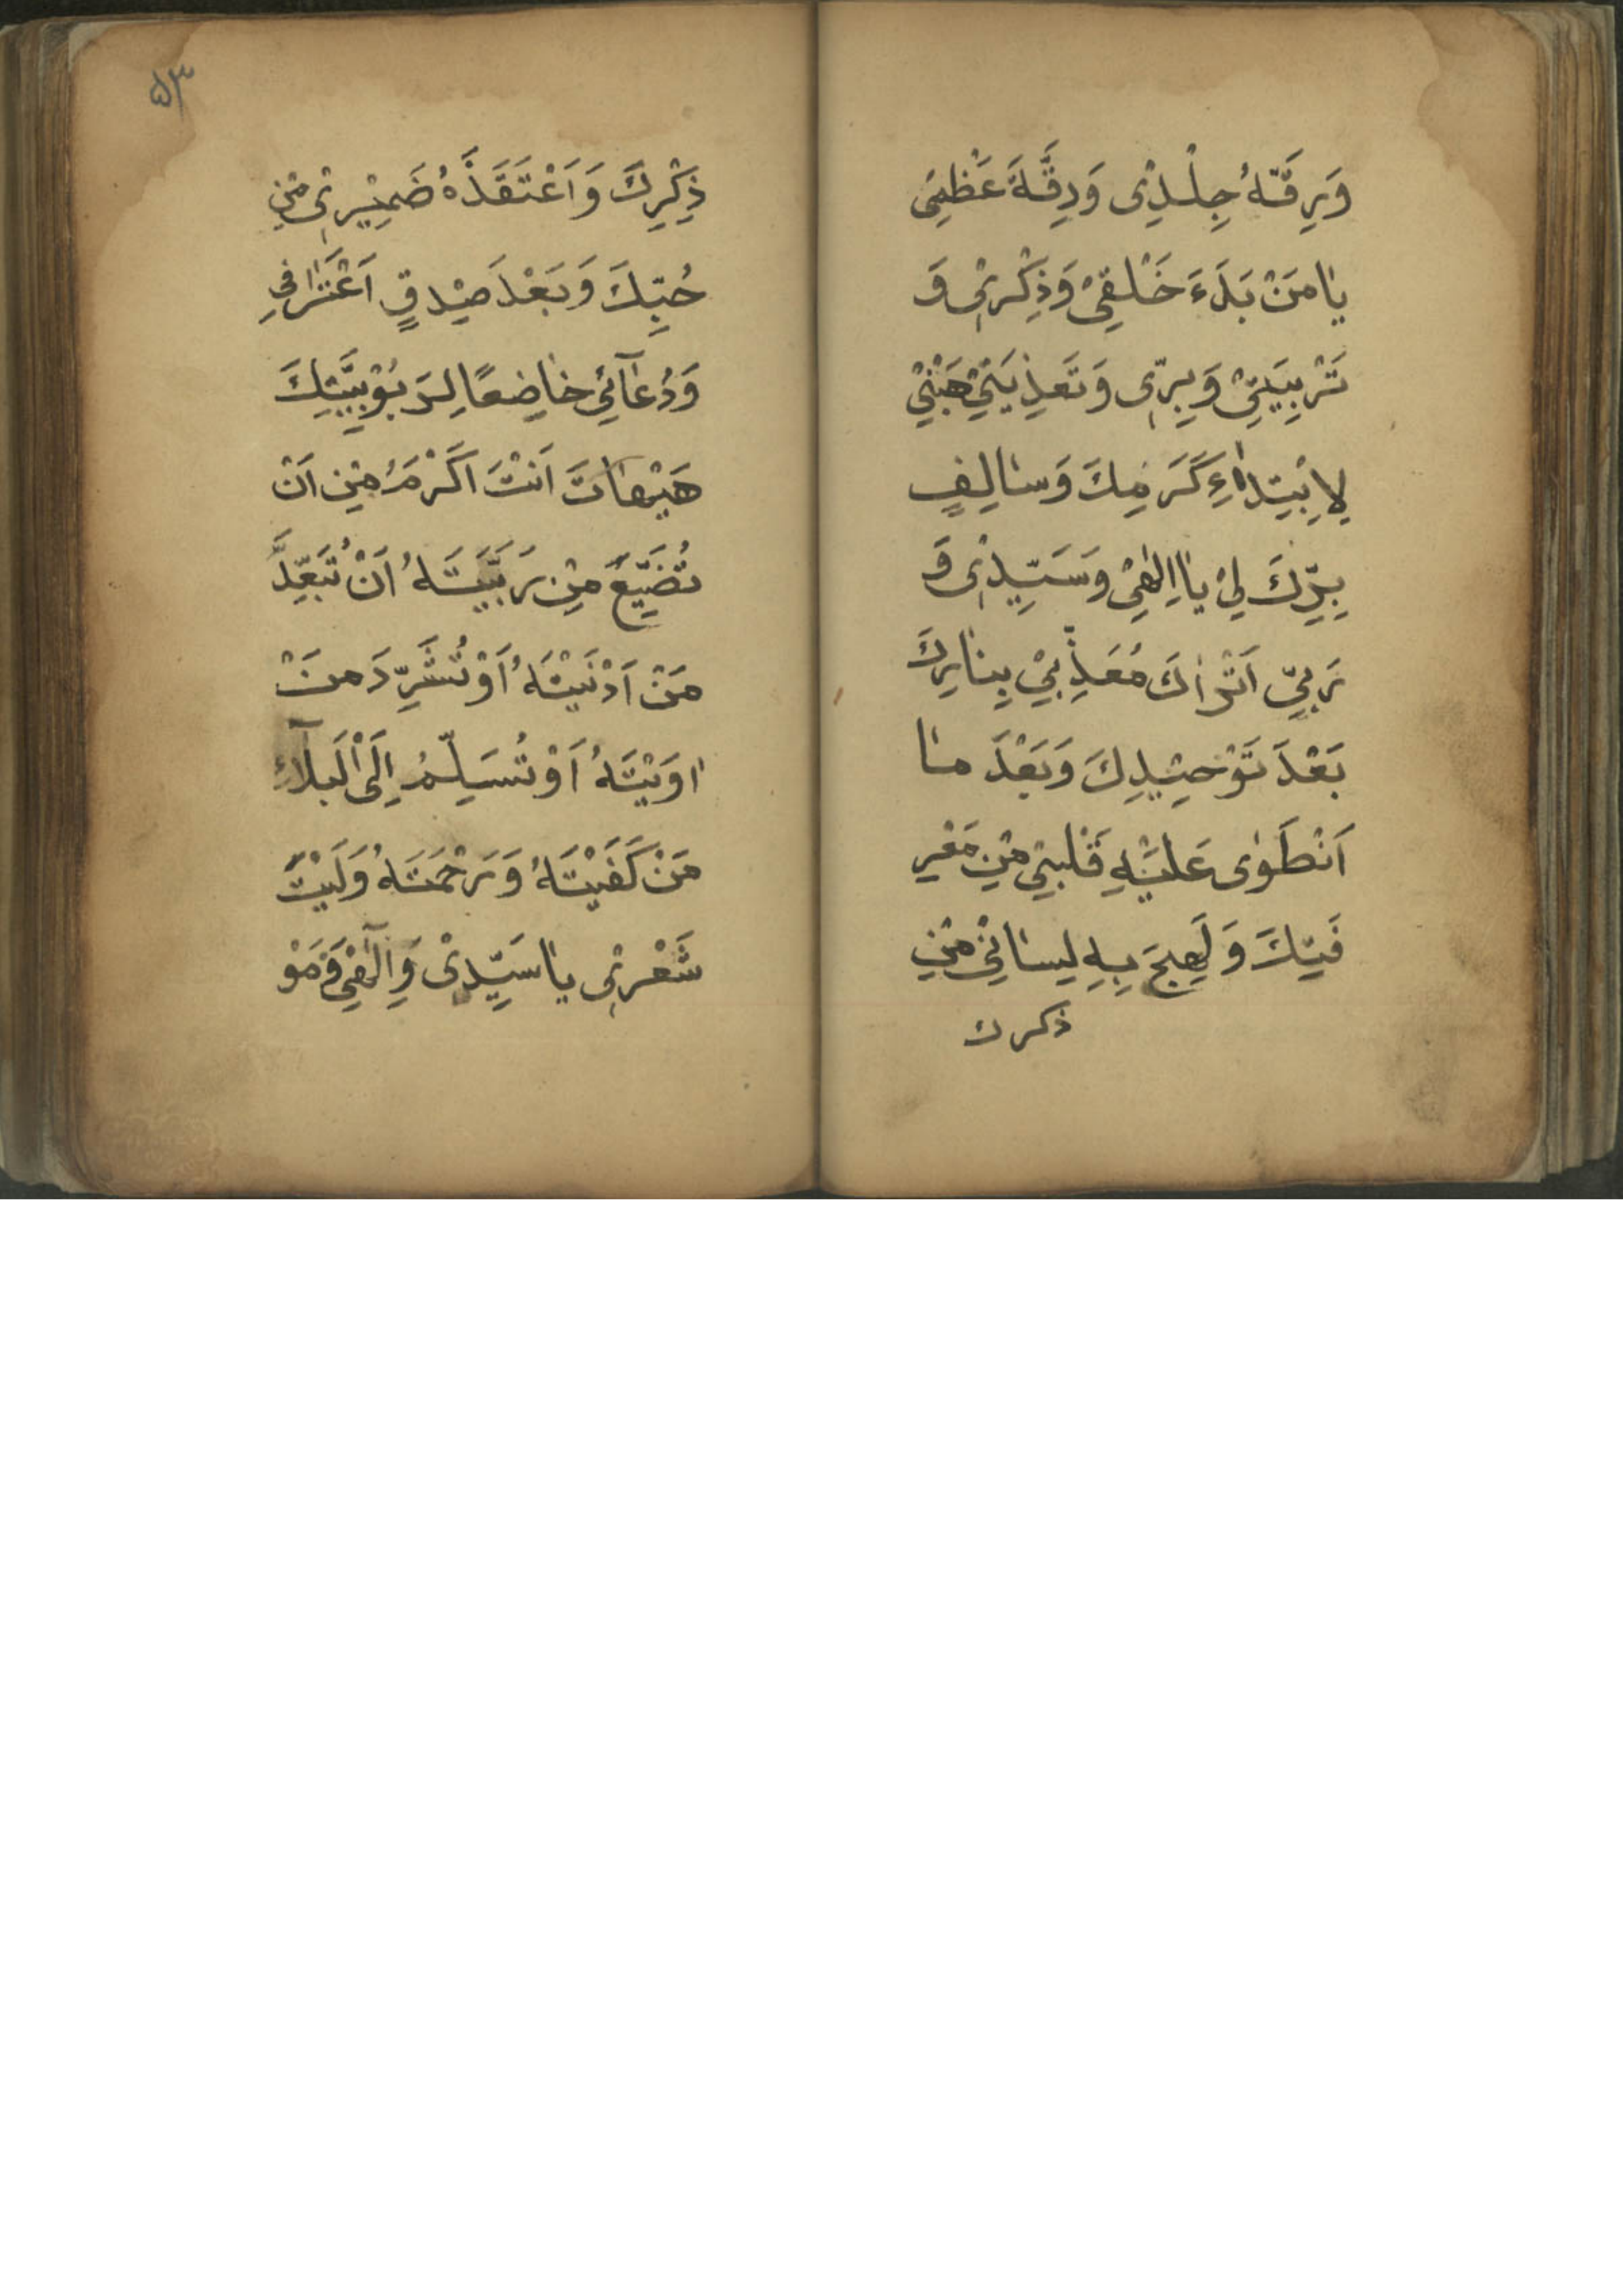 وَرِقَّةُ جِلْدِی وَدِقَّةَ عَظْمِی
یٰا مَنْ بَدَءَ خَلْقِیْ وَذِكْرِیْ وَ
تَرْبِیَتِیْ وَبِرّی وَتَغذِیَتِیْ هَبْنِیْ
لِاِبْتِدٰاءِ كَرَمِكَ وَسٰالِفِ
بِرِّكَ لِیْ یٰا اِلٰهِیْ وَسَیِّدِیْ وَ
رَبِّیْ اَتُرٰاكَ مُعَذِّبِیْ بِنٰارِكَ
بَعْدَ تَوْحِیْدِكَ وَبَعْدَ مٰا
اَنْطَوٰی عَلَیْهِ قَلْبِیْ مِنْ مَعْرِ
فَتِكَ وَلَهِجَ بِهِ لِسٰانِیْ مِنْ
ذكرك
۵۳
ذِكْرِكَ وَاَعْتَقَدَهُ ضَمِیْرِیْ مِنْ
حُبِّكَ وَبَعْدَ صِدْقِ اَعْتِرٰافِی
وَدُعٰآئِیْ خٰاضِعًا لِرَبُوْبِیَّتِكَ
هَیْهٰاتَ اَنْتَ اَكْرَمُ مِنْ اَنْ
تُضَیِّعَ مِنْ رَبَّیْتَهُ اَنْ تُبَعِّدَ
مَنْ اَدْنَیْتَهُ اَوْ تُشَرِّدَ مَنْ
اٰوَیْتَهُ اَوْ تُسَلِّمُ اِلَی الْبَلٰآءِ
مَنْ كَفَیْتَهُ وَرَحْمَتَهُ وَلَیْتَ
شَعْرِیْ یٰا سَیِّدِیْ وَاِلٰهِیْ وَمَوْ